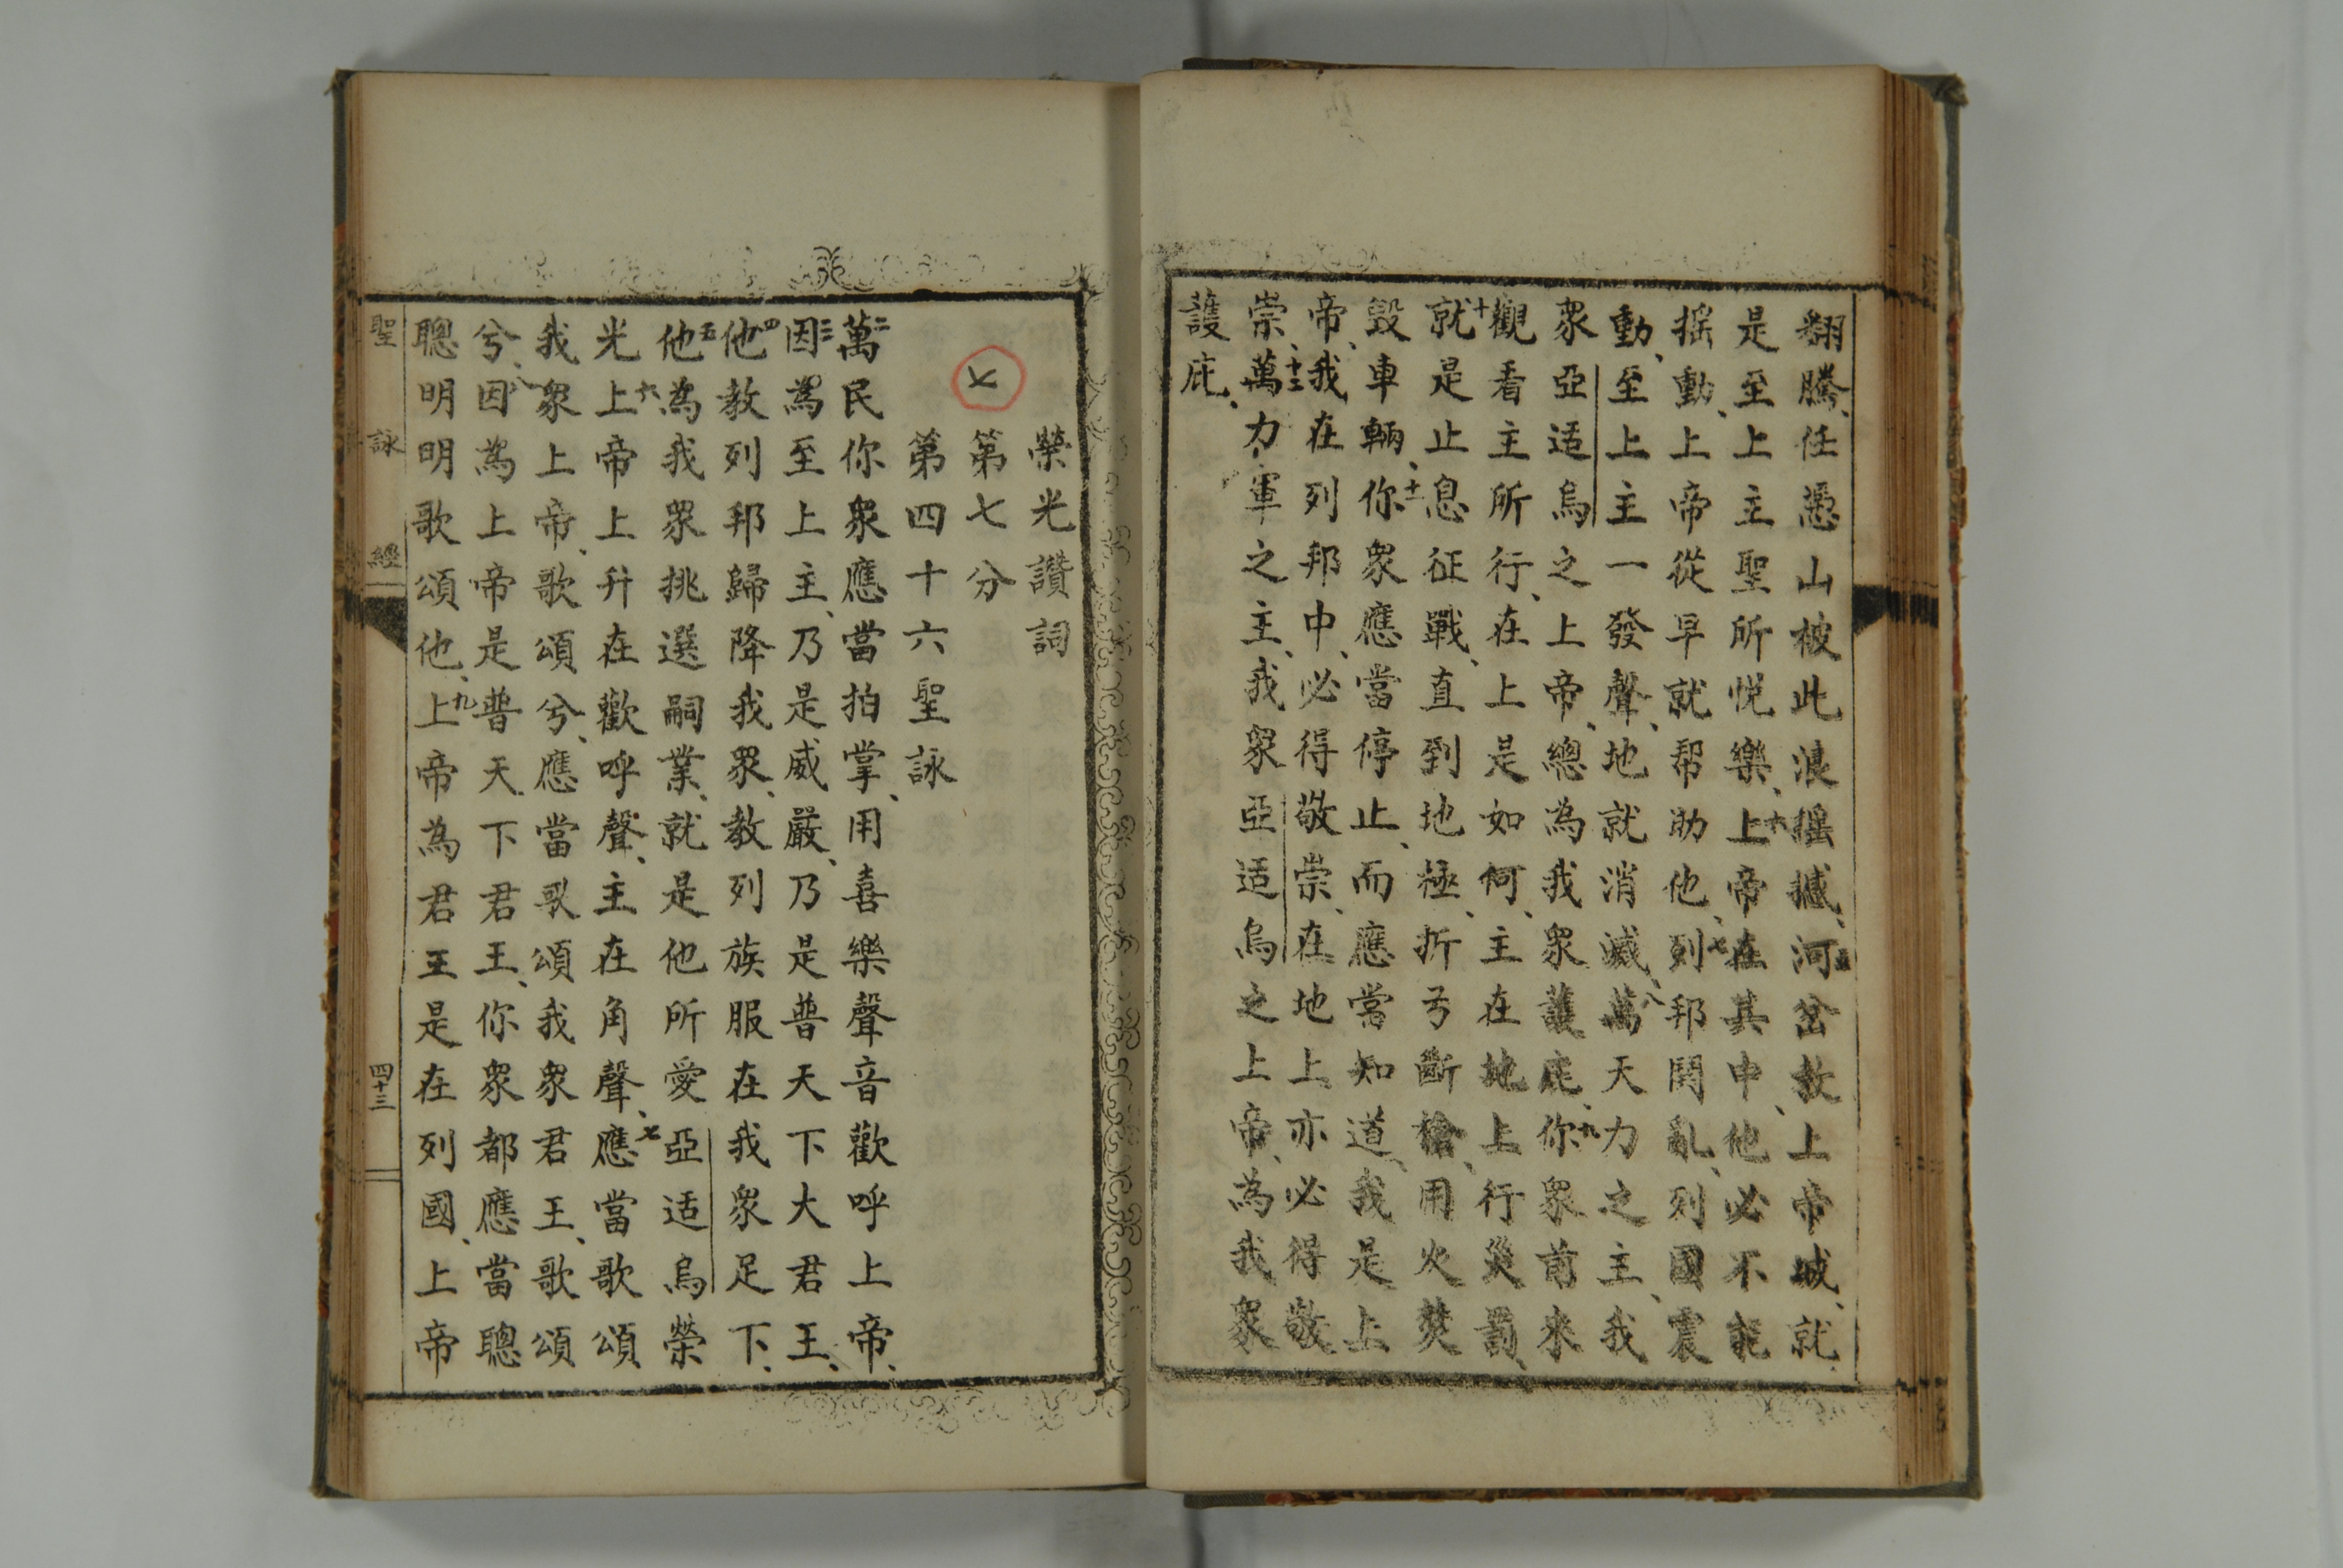 翻騰、任憑山被此浪搖撼、五河岔敖上帝城、就
是至上主聖所悅樂、六上帝在其中、他必不能
搖動、上帝從早就帮助他、七列邦鬨亂、列國震
動、至上主一發聲、地就消滅、八萬天力之主、我
衆亞适烏之上帝、總為我衆護庇、九你衆前來
觀看主所行、在上是如何、主在地上行災罰、
十就是止息征戰、直到地極、折弓斷槍、用火焚
毀車輛、十一你衆應當停止、而應當知道、我是上
帝、我在列邦中、必得敬崇、在地上亦必得敬
崇、十二萬力軍之主、我衆亞适烏之上帝、為我衆
護庇、
榮光讚詞
第七分
七
第四十六聖詠
二萬民你衆應當拍掌、用喜樂聲音歡呼上帝、
三因為至上主、乃是威嚴、乃是普天下大君王、
四他教列邦歸降我衆、教列族服在我衆足下、
五他為我衆挑選嗣業、就是他所愛亞适烏榮
光、六上帝上升在歡呼聲、主在角聲、七應當歌頌
我衆上帝、歌頌兮、應當歌頌我衆君王、歌頌
兮、八因為上帝是普天下君王、你衆都應當聰
聰明明歌頌他、九上帝為君王是在列國、上帝
聖詠經
四十三